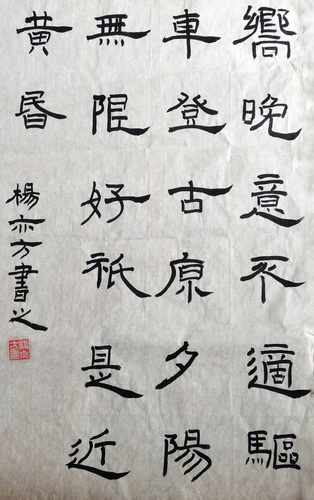 嚮晚意不適驅
車登古原夕陽
無限好祇是近
黃昏
楊亦方書之